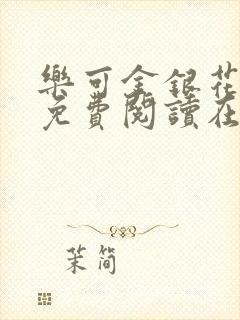 樂可金銀花
免費閱讀在
茉简